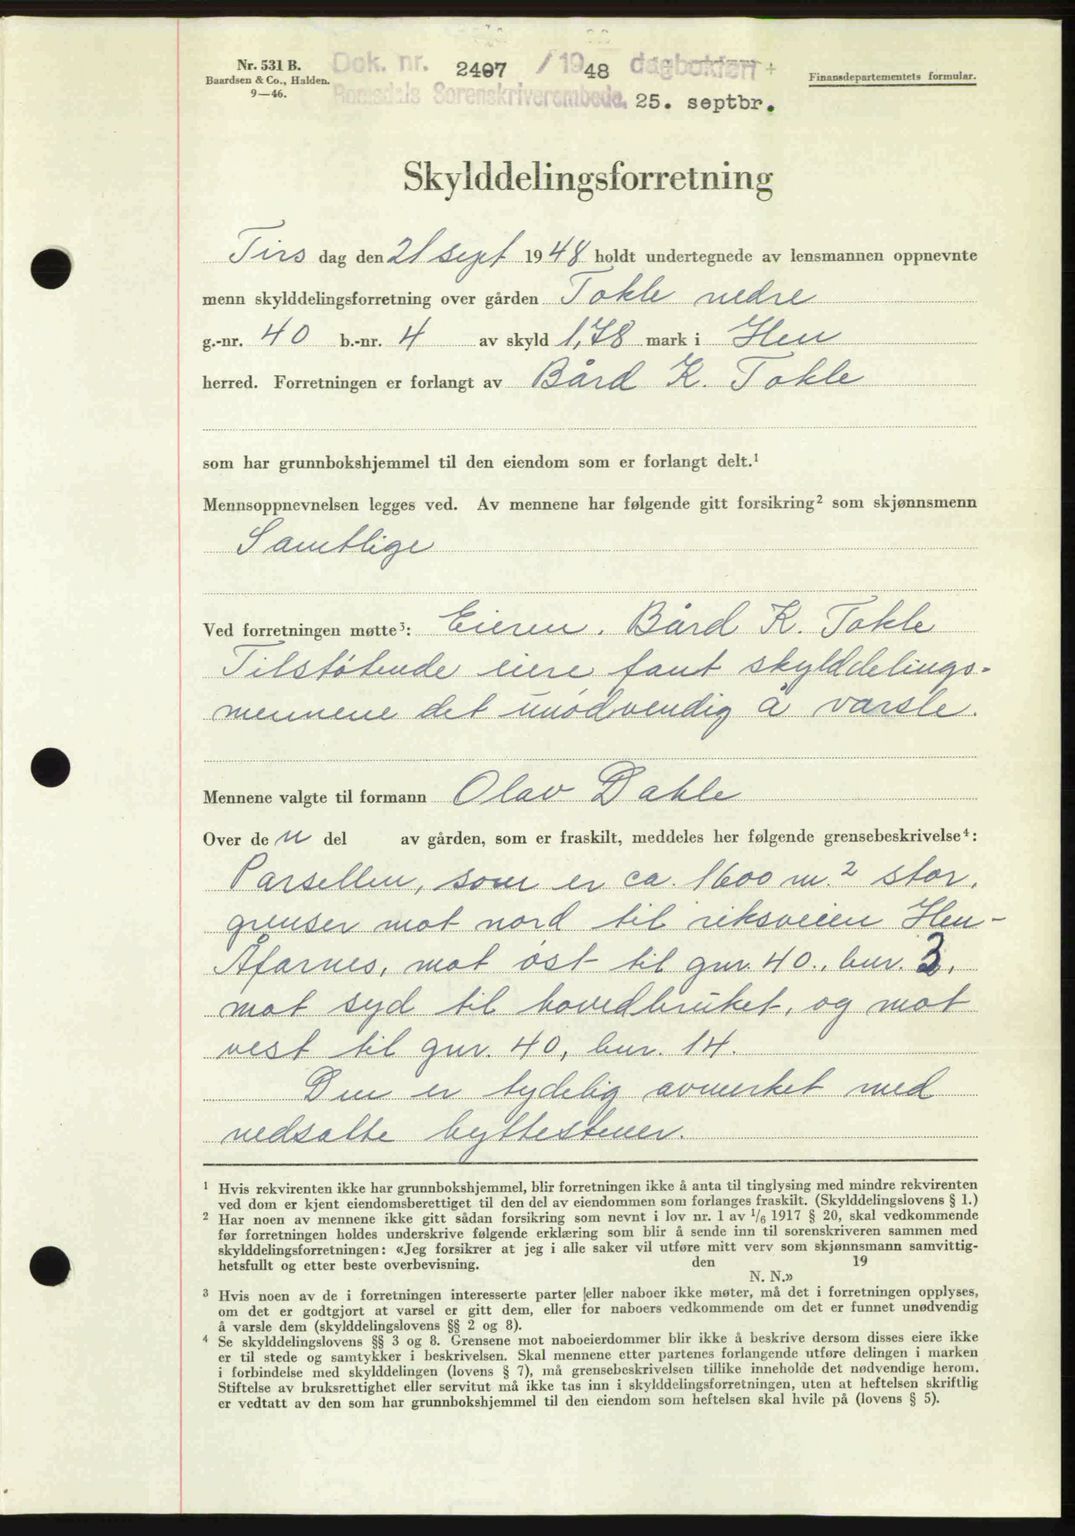 Nr. 531 B.
Baardsen & Co., Halden.
9—46.
Dok. nr. 2407 / 1948 dagboken
Romsdals Sorenskriverembede, 25. septbr.
Finansdepartementets formular.
Skylddelingsforretning
Tirsdag den 21 sept 1948 holdt undertegnede av lensmannen oppnevnte
menn skylddelingsforretning over gården Tokle nedre
g.-nr. 40 b.-nr. 4 av skyld 1,78 mark i Hen
herred. Forretningen er forlangt av Bård K. Tokle
som har grunnbokshjemmel til den eiendom som er forlangt delt.¹
Mennsoppnevnelsen legges ved. Av mennene har følgende gitt forsikring² som skjønnsmenn
Samtlige
Ved forretningen møtte³: Eieren. Bård K. Tokle
Tilstøtende eiere fant skylddelings-
mennene det unødvendig å varsle.
Mennene valgte til formann Olav Dahle
Over den del av gården, som er fraskilt, meddeles her følgende grensebeskrivelse⁴:
Parsellen, som er ca. 1600 m.² stor,
grenser mot nord til riksveien Hen-
Åfarnes, mot øst til gnr. 40., bnr. 3,
mot syd til hovedbruket, og mot
vest til gnr. 40, bnr. 14.
Den er tydelig avmerket med
nedsatte byttestener.
¹ Hvis rekvirenten ikke har grunnbokshjemmel, blir forretningen ikke å anta til tinglysing med mindre rekvirenten
ved dom er kjent eiendomsberettiget til den del av eiendommen som forlanges fraskilt. (Skylddelingslovens § 1.)
² Har noen av mennene ikke gitt sådan forsikring som nevnt i lov nr. 1 av ¹/₆ 1917 § 20, skal vedkommende
før forretningen holdes underskrive følgende erklæring som blir å sende inn til sorenskriveren sammen med
skylddelingsforretningen: «Jeg forsikrer at jeg i alle saker vil utføre mitt verv som skjønnsmann samvittig-
hetsfullt og etter beste overbevisning. den 19
N. N.»
³ Hvis noen av de i forretningen interesserte parter eller naboer ikke møter, må det i forretningen opplyses,
om det er godtgjort at varsel er gitt dem, eller for naboers vedkommende om det er funnet unødvendig
å varsle dem (skylddelingslovens §§ 2 og 8).
⁴ Se skylddelingslovens §§ 3 og 8. Grensene mot naboeierdommer blir ikke å beskrive dersom disses eiere ikke
er til stede og samtykker i beskrivelsen. Skal mennene etter partenes forlangende utføre delingen i marken
i forbindelse med skylddelingen (lovens § 7), må grensebeskrivelsen tillike inneholde det nødvendige herom.
Stiftelse av bruksrettighet eller servitut må ikke tas inn i skylddelingsforretningen, uten at heftelsen skriftlig
er vedtatt av den som har grunnbokshjemmel til den eiendom som heftelsen skal hvile på (lovens § 5).